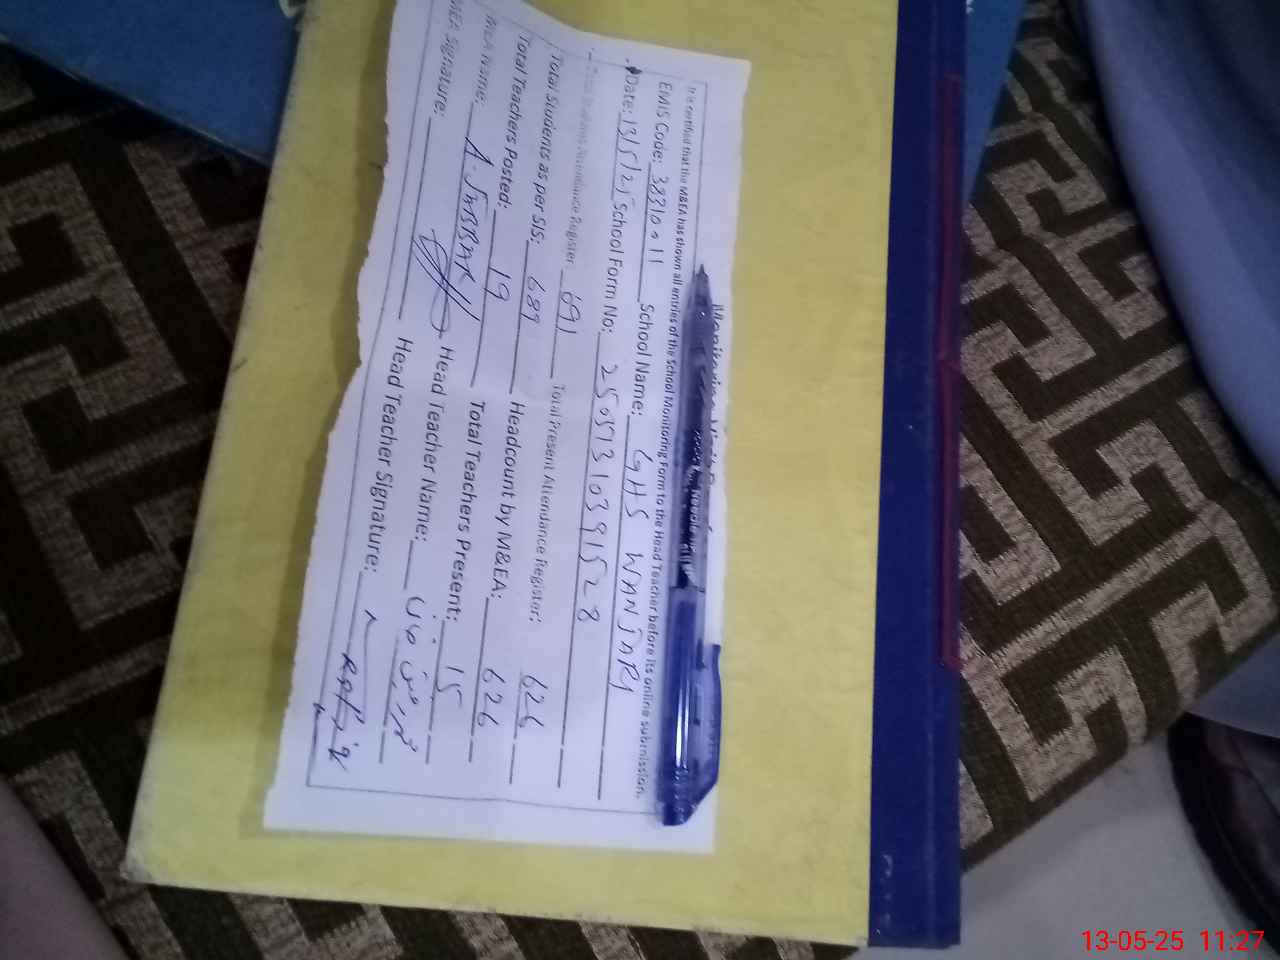 It is certified that the M&EA has shown all entries of the School Monitoring Form to the Head Teacher before its online submission.
EMIS Code: 38310011 School Name: GHS WANJARI
Date: 13/5/25 School Form No: 25051310391528
Total Students Attendance Register 691 Total Present Attendance Register: 626
Total Students as per SIS: 689 Headcount by M&EA: 626
Total Teachers Posted: 19 Total Teachers Present: 15
MEA Name: Head Teacher Name:
MEA Signature: Head Teacher Signature:
13-05-25 11:27